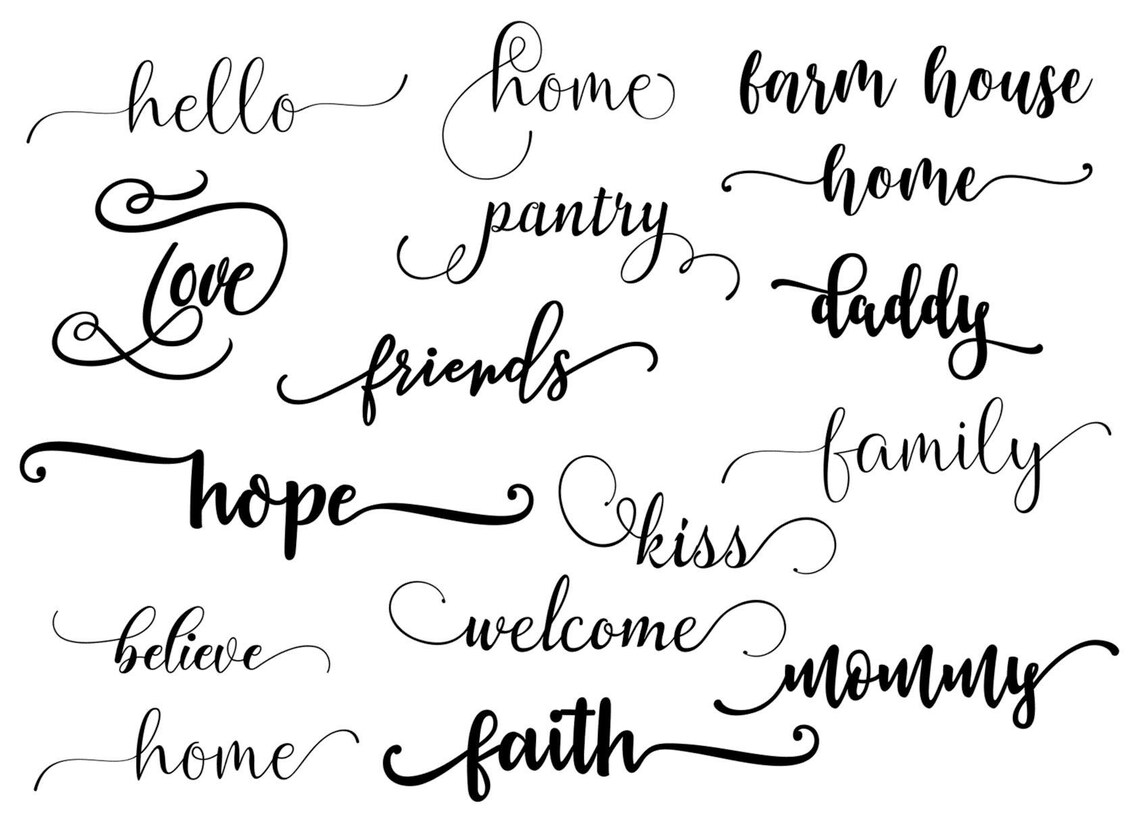 hello
home
farm house
home
love
pantry
daddy
friends
family
hope
kiss
believe
welcome
mommy
home
faith